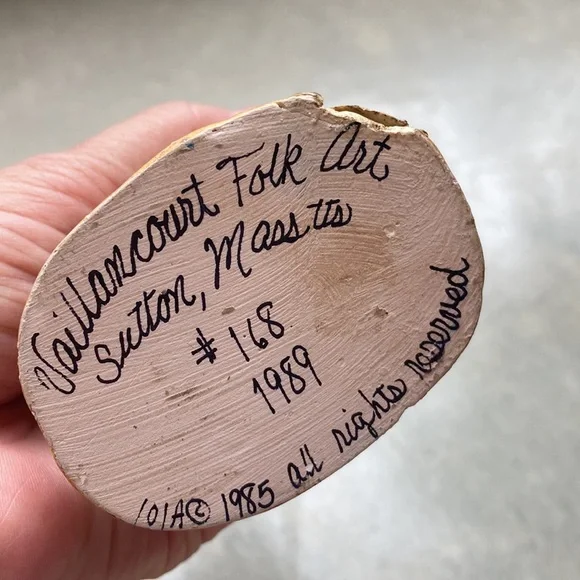 Vaillancourt Folk Art
Sutton, Masstts
# 168
1989
101A © 1985 all rights reserved